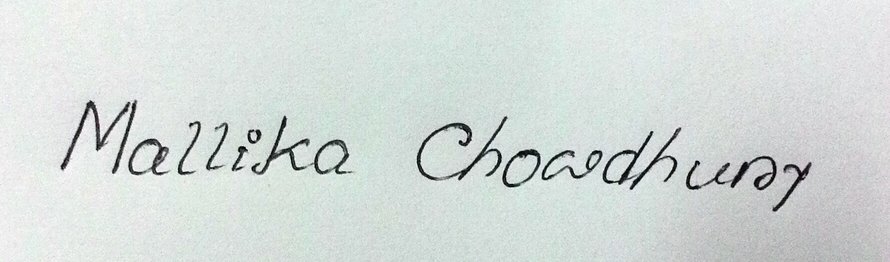 Mallika Chowdhury